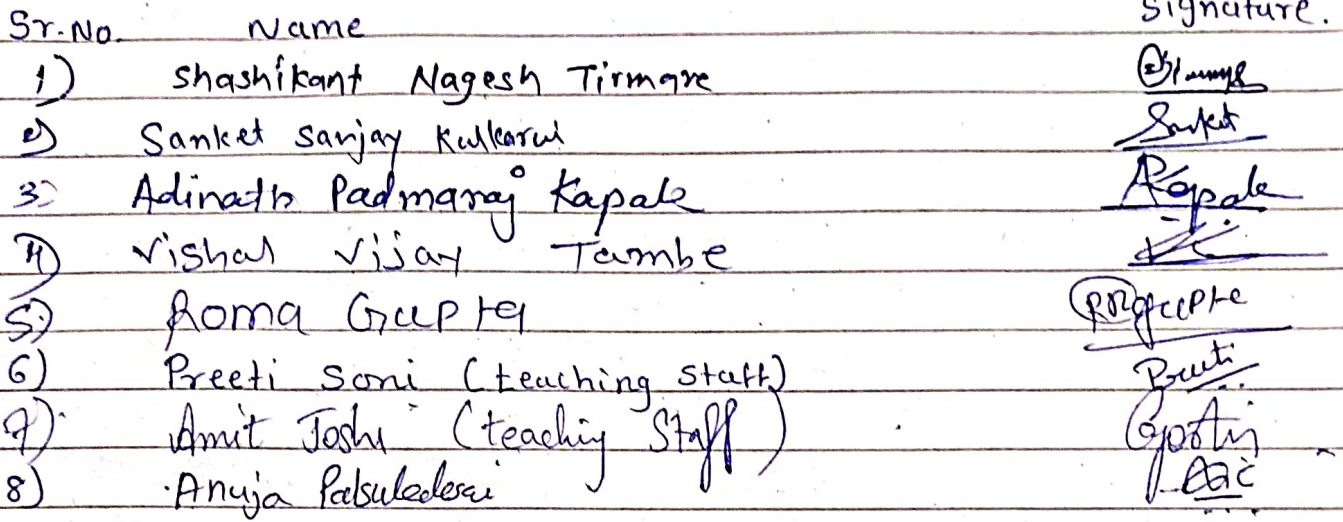 Sr.No. Name Signature.
1) Shashikant Nagesh Tirmare
2) Sanket Sanjay Kulkarni Sanket
3) Adinath Padmaraj Kapale Kapale
4) Vishal Vijay Tambe
5) Roma Gupta RRgupta
6) Preeti Soni (teaching Staff) Preeti
7) Amit Joshi (teaching Staff)
8) Anuja Palsuledesai